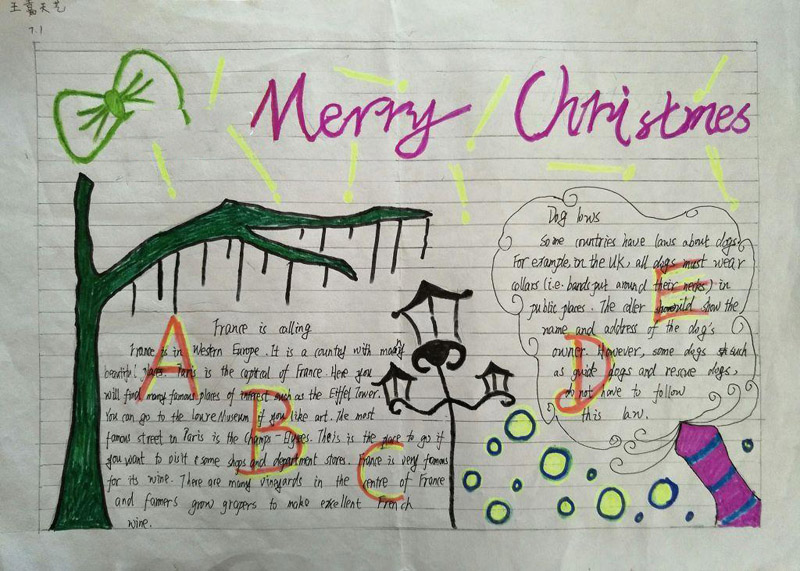 王嘉天艺
7.1
Merry Christmes
Dog laws
Some countries have laws about dogs.
For example, in the UK, all dogs must wear
collars (i.e. bands put around their necks) in
public places. The coller should show the
name and address of the dog's
owner. However, some dogs such
as guide dogs and rescue dogs,
do not have to follow
this law.
France is calling
France is in Western Europe. It is a country with many
beautiful places. Paris is the capital of France. Here you
will find many famous places of interest such as the Eiffel Tower.
You can go to the louvre Museum if you like art. The most
famous street in Paris is the Champs-Elysees. This is the place to go if
you want to visit some shops and department stores. France is very famous
for its wine. There are many vineyards in the centre of France
and farmers grow grapers to make excellent French
wine.
A
B
C
D
E